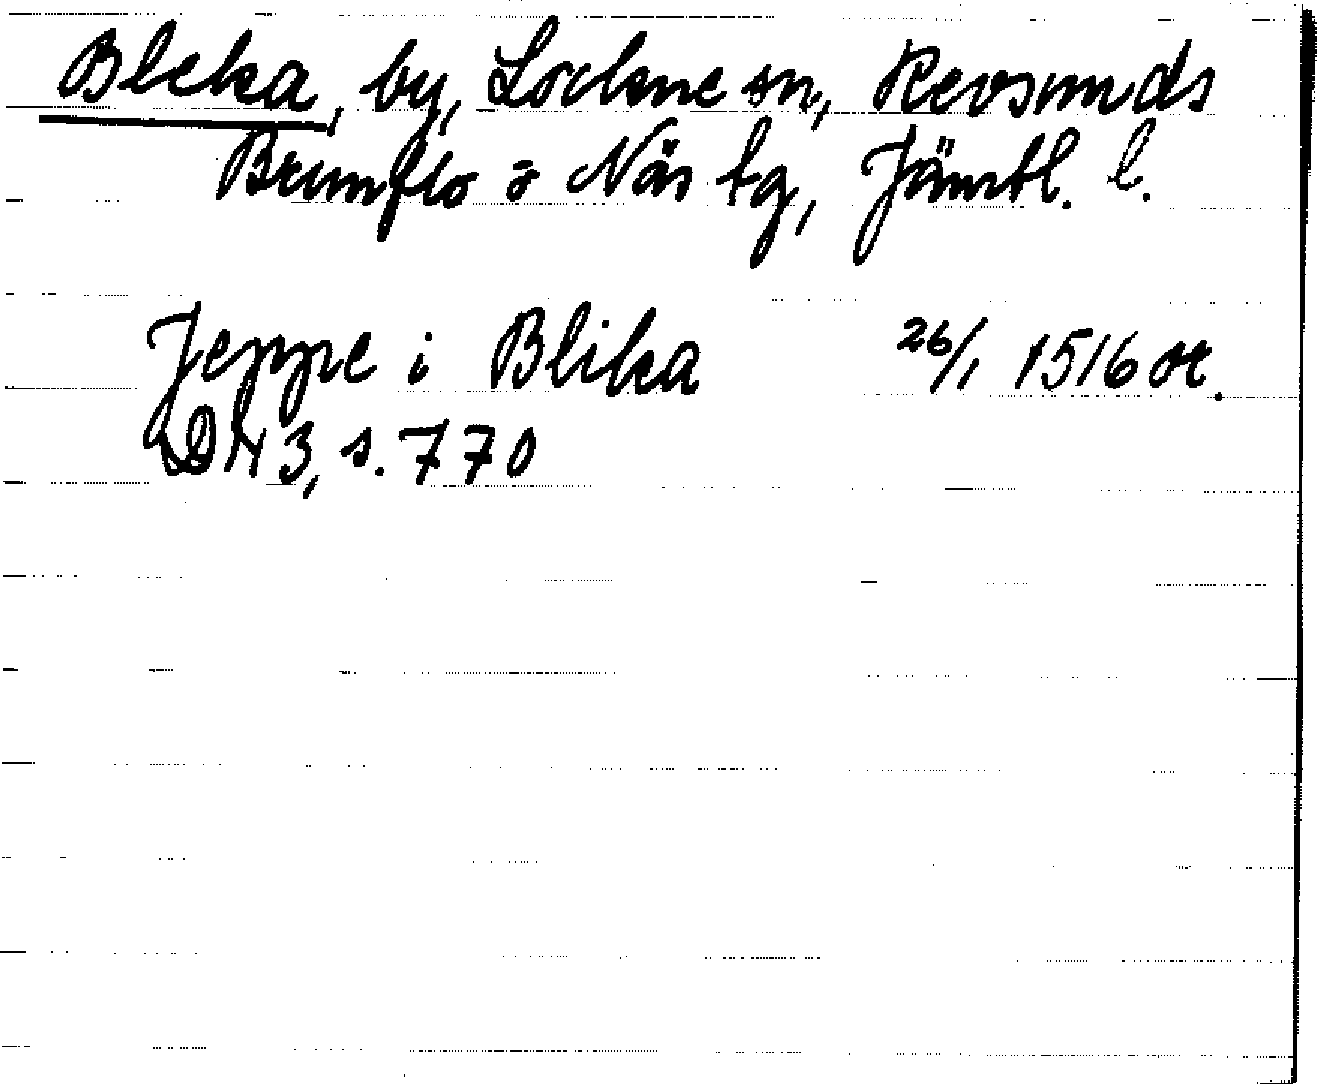 Bleka, by, Lockne sn, Revsunds
Brunflo o Näs tg, Jämtl. l.
Jeppe i Blika 26/1 1516 or.
DN 3, s. 770